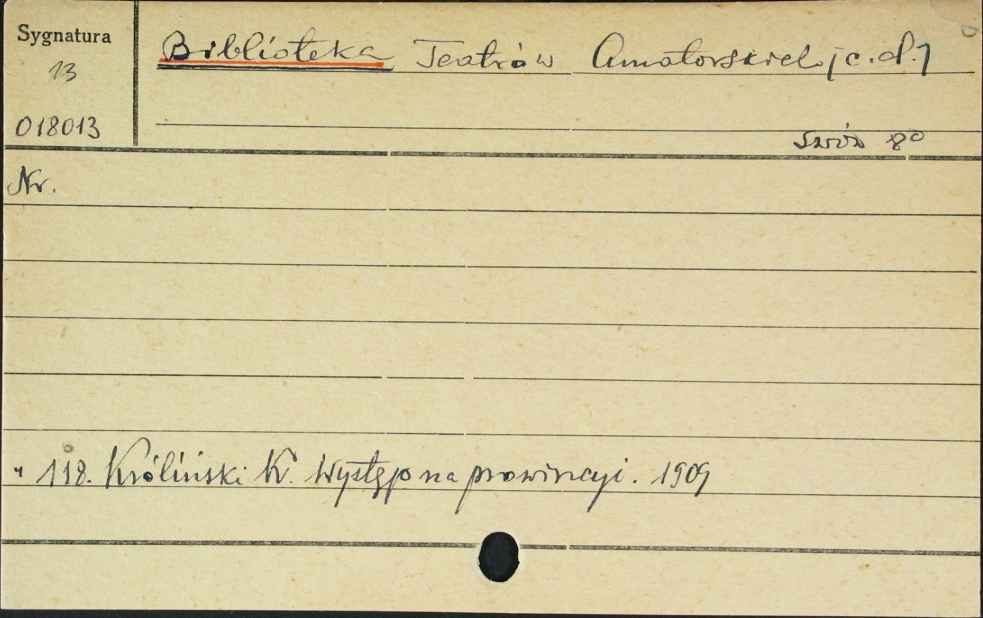 Sygnatura
13
018013
Biblioteka Teatrów Amatorskich [c.d.]
Lwów 8°
Nr.
" 118. Króliński K. Występ na prowincyi. 1909